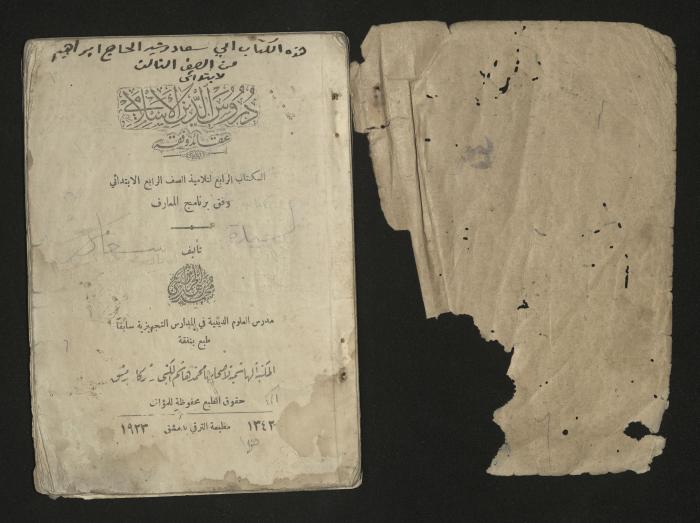 هذه الكتاب الى سعاد رشيد الحاج ابراهيم
من الصف الثالث
لابتدائي
دروس الدين الإسلامي
عقائد وفقه
الكتاب الرابع لتلاميذ الصف الرابع الابتدائي
وفق برنامج المعارف
سعاد
تأليف
مدرس العلوم الدينية في المدارس التجهيزية سابقا
طبع بنفقة
المكتبة الهاشمية لصاحبها محمد هاشم الكتبي
حقوق الطبع محفوظة للمؤلف
١٣٤٢ مطبعة الترقي بدمشق ١٩٢٣